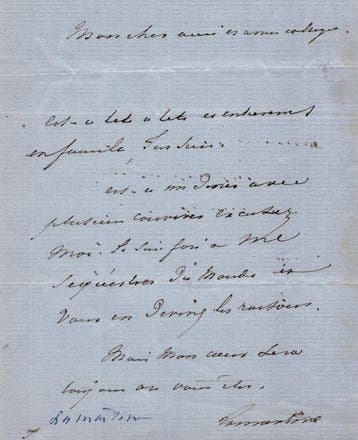 Mon cher ami et ancien collegue
est-ce tete a tete et entierement
en famille J'en suis.
est-ce un Diner avec
plusieurs convives excusez
moi. Je suis forcé a me
sequestrer Du Monde ici
Vous en Devinez les raisons.
Mais Mon coeur sera
toujours au votre.
Lamartine Lamartine